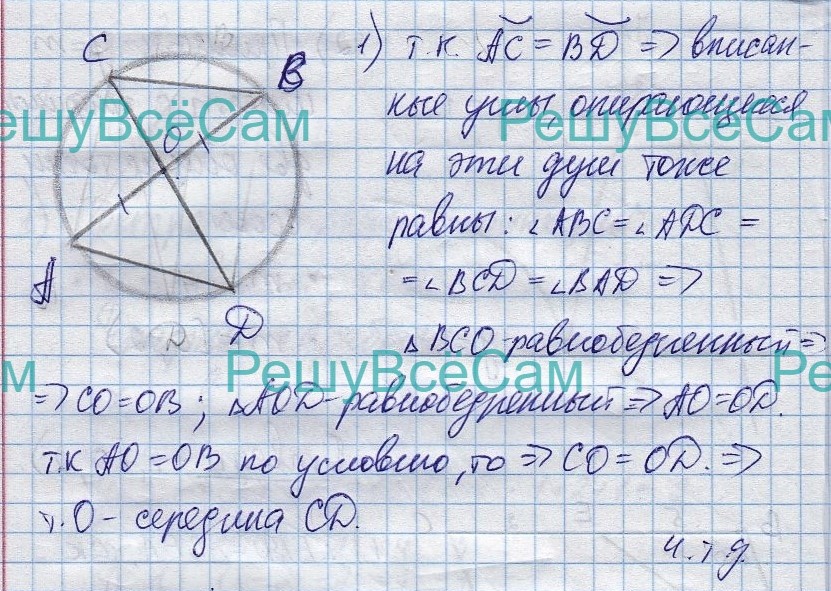 1) т.к. AC = BD => вписан-
ные углы, опирающиеся
на эти дуги тоже
равны: ∠ABC = ∠ADC =
= ∠BCD = ∠BAD =>
△BCO - равнобедренный =>
=> CO = OB; △AOD - равнобедренный => AO = OD.
т.к AO = OB по условию, то => CO = OD. =>
т.O - середина CD.
ч.т.д.
C
B
O
A
D
РешуВсёСам
РешуВсёСам
РешуВсёСам